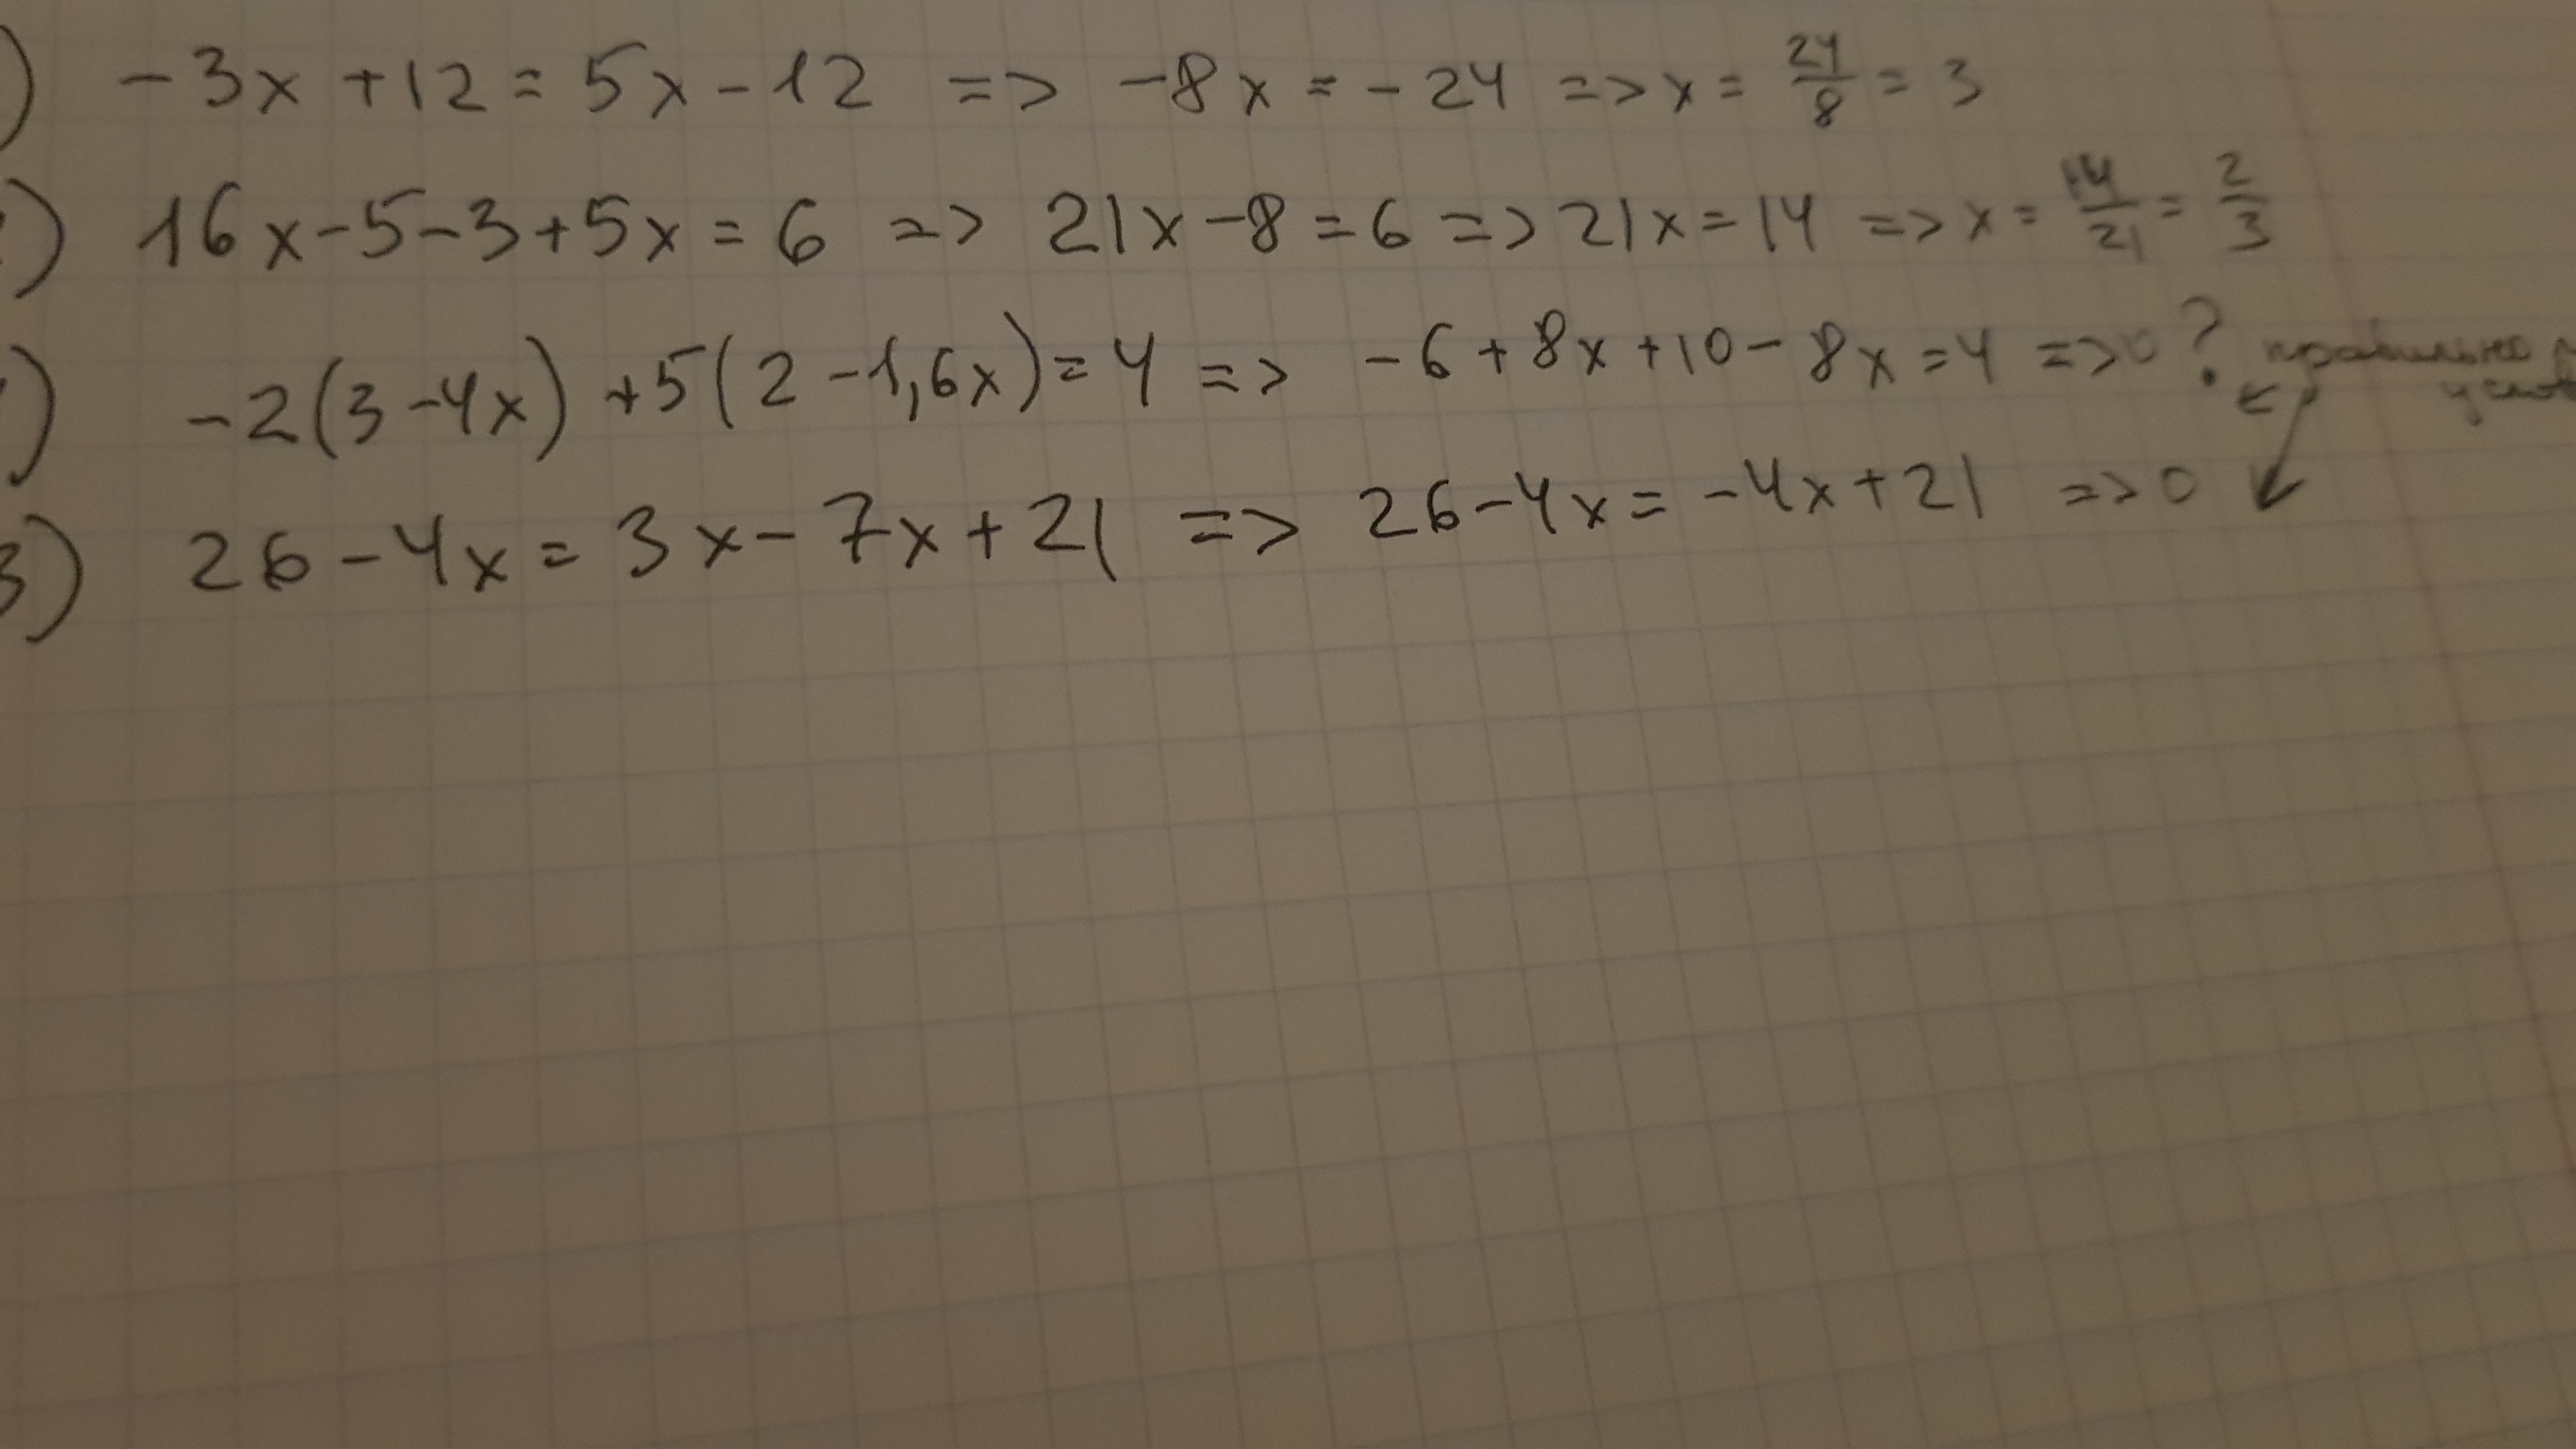 ) -3x +12 = 5x - 12 => -8x = -24 => x = 24/8 = 3
) 16x-5-3+5x = 6 => 21x-8=6 => 21x=14 => x = 14/21 = 2/3
) -2(3-4x) +5(2-1,6x)=4 => -6+8x+10-8x=4 =>0 ? правильно
3) 26-4x = 3x-7x+21 => 26-4x = -4x+21 =>0